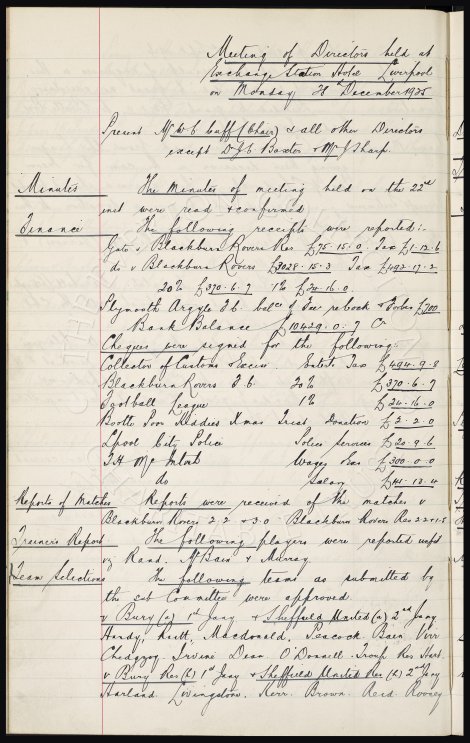 Meeting of Directors held at
Exchange Station Hotel Liverpool
on Monday 28th December 1925
Present Mr W C Cuff (Chair) & all other Directors
except Dr J C Baxter & Mr J Sharp.
Minutes The Minutes of meeting held on the 22nd
inst were read & confirmed
Finance The following receipts were reported:-
Gate v Blackburn Rovers Res £75.15.0. Tax £1.12.6
do v Blackburn Rovers £3028.15.3 Tax £492.17.2
20% £370.6.7 1% £24.16.0.
Plymouth Argyle F.C. balce of Fee re Cock & Forbes £700
Bank Balance £10429.0.7 Cr
Cheques were signed for the following:
Collector of Customs & Excise. Enterts Tax £494.9.8
Blackburn Rovers F.C. 20% £370.6.7
Football League 1% £24.16.0
Bootle Poor Kiddies Xmas Treat Donation £2.2.0
Lpool City Police Police Services £20.9.6
T.H. McIntosh Wages Exes £300.0.0
do Salary £41.13.4
Reports of Matches Reports were received of the matches v
Blackburn Rovers 2.2 & 3.0 Blackburn Rovers Res 2.2 &
Trainers Report The following players were reported unfit
viz Rand. McBain & Murray
Team Selections The following teams as submitted by
the sub Committee were approved
v Bury (a) 1st Jany & Sheffield United (a) 2nd Jany
Hardy, Macdonald, Peacock Bain Virr
Chedgzoy. Irvine Dean. O'Donnell. Troup Res Hart.
v Bury Res (h) 1st Jany & Sheffield United Res (h) 2nd Jany
Harland Livingstone. Kerr. Brown. Reid Rooney